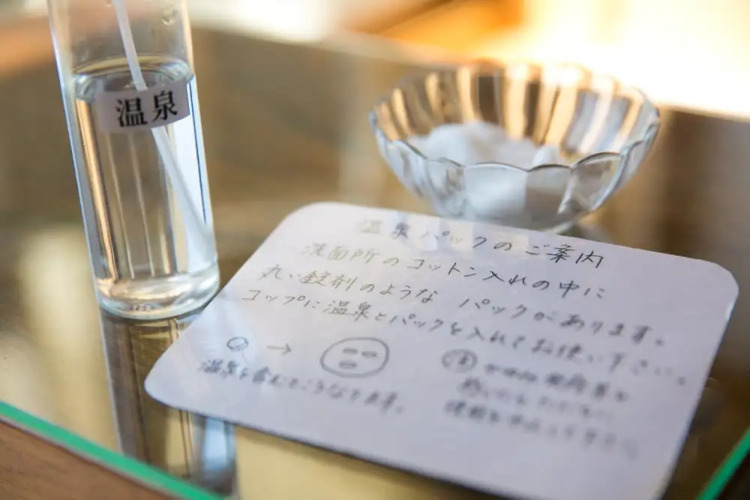 温泉
温泉パックのご案内
洗面所のコットン入れの中に
丸い錠剤のような パックがあります。
コップに温泉とパックを入れてお使い下さい。
→
温泉を含むとこうなります。